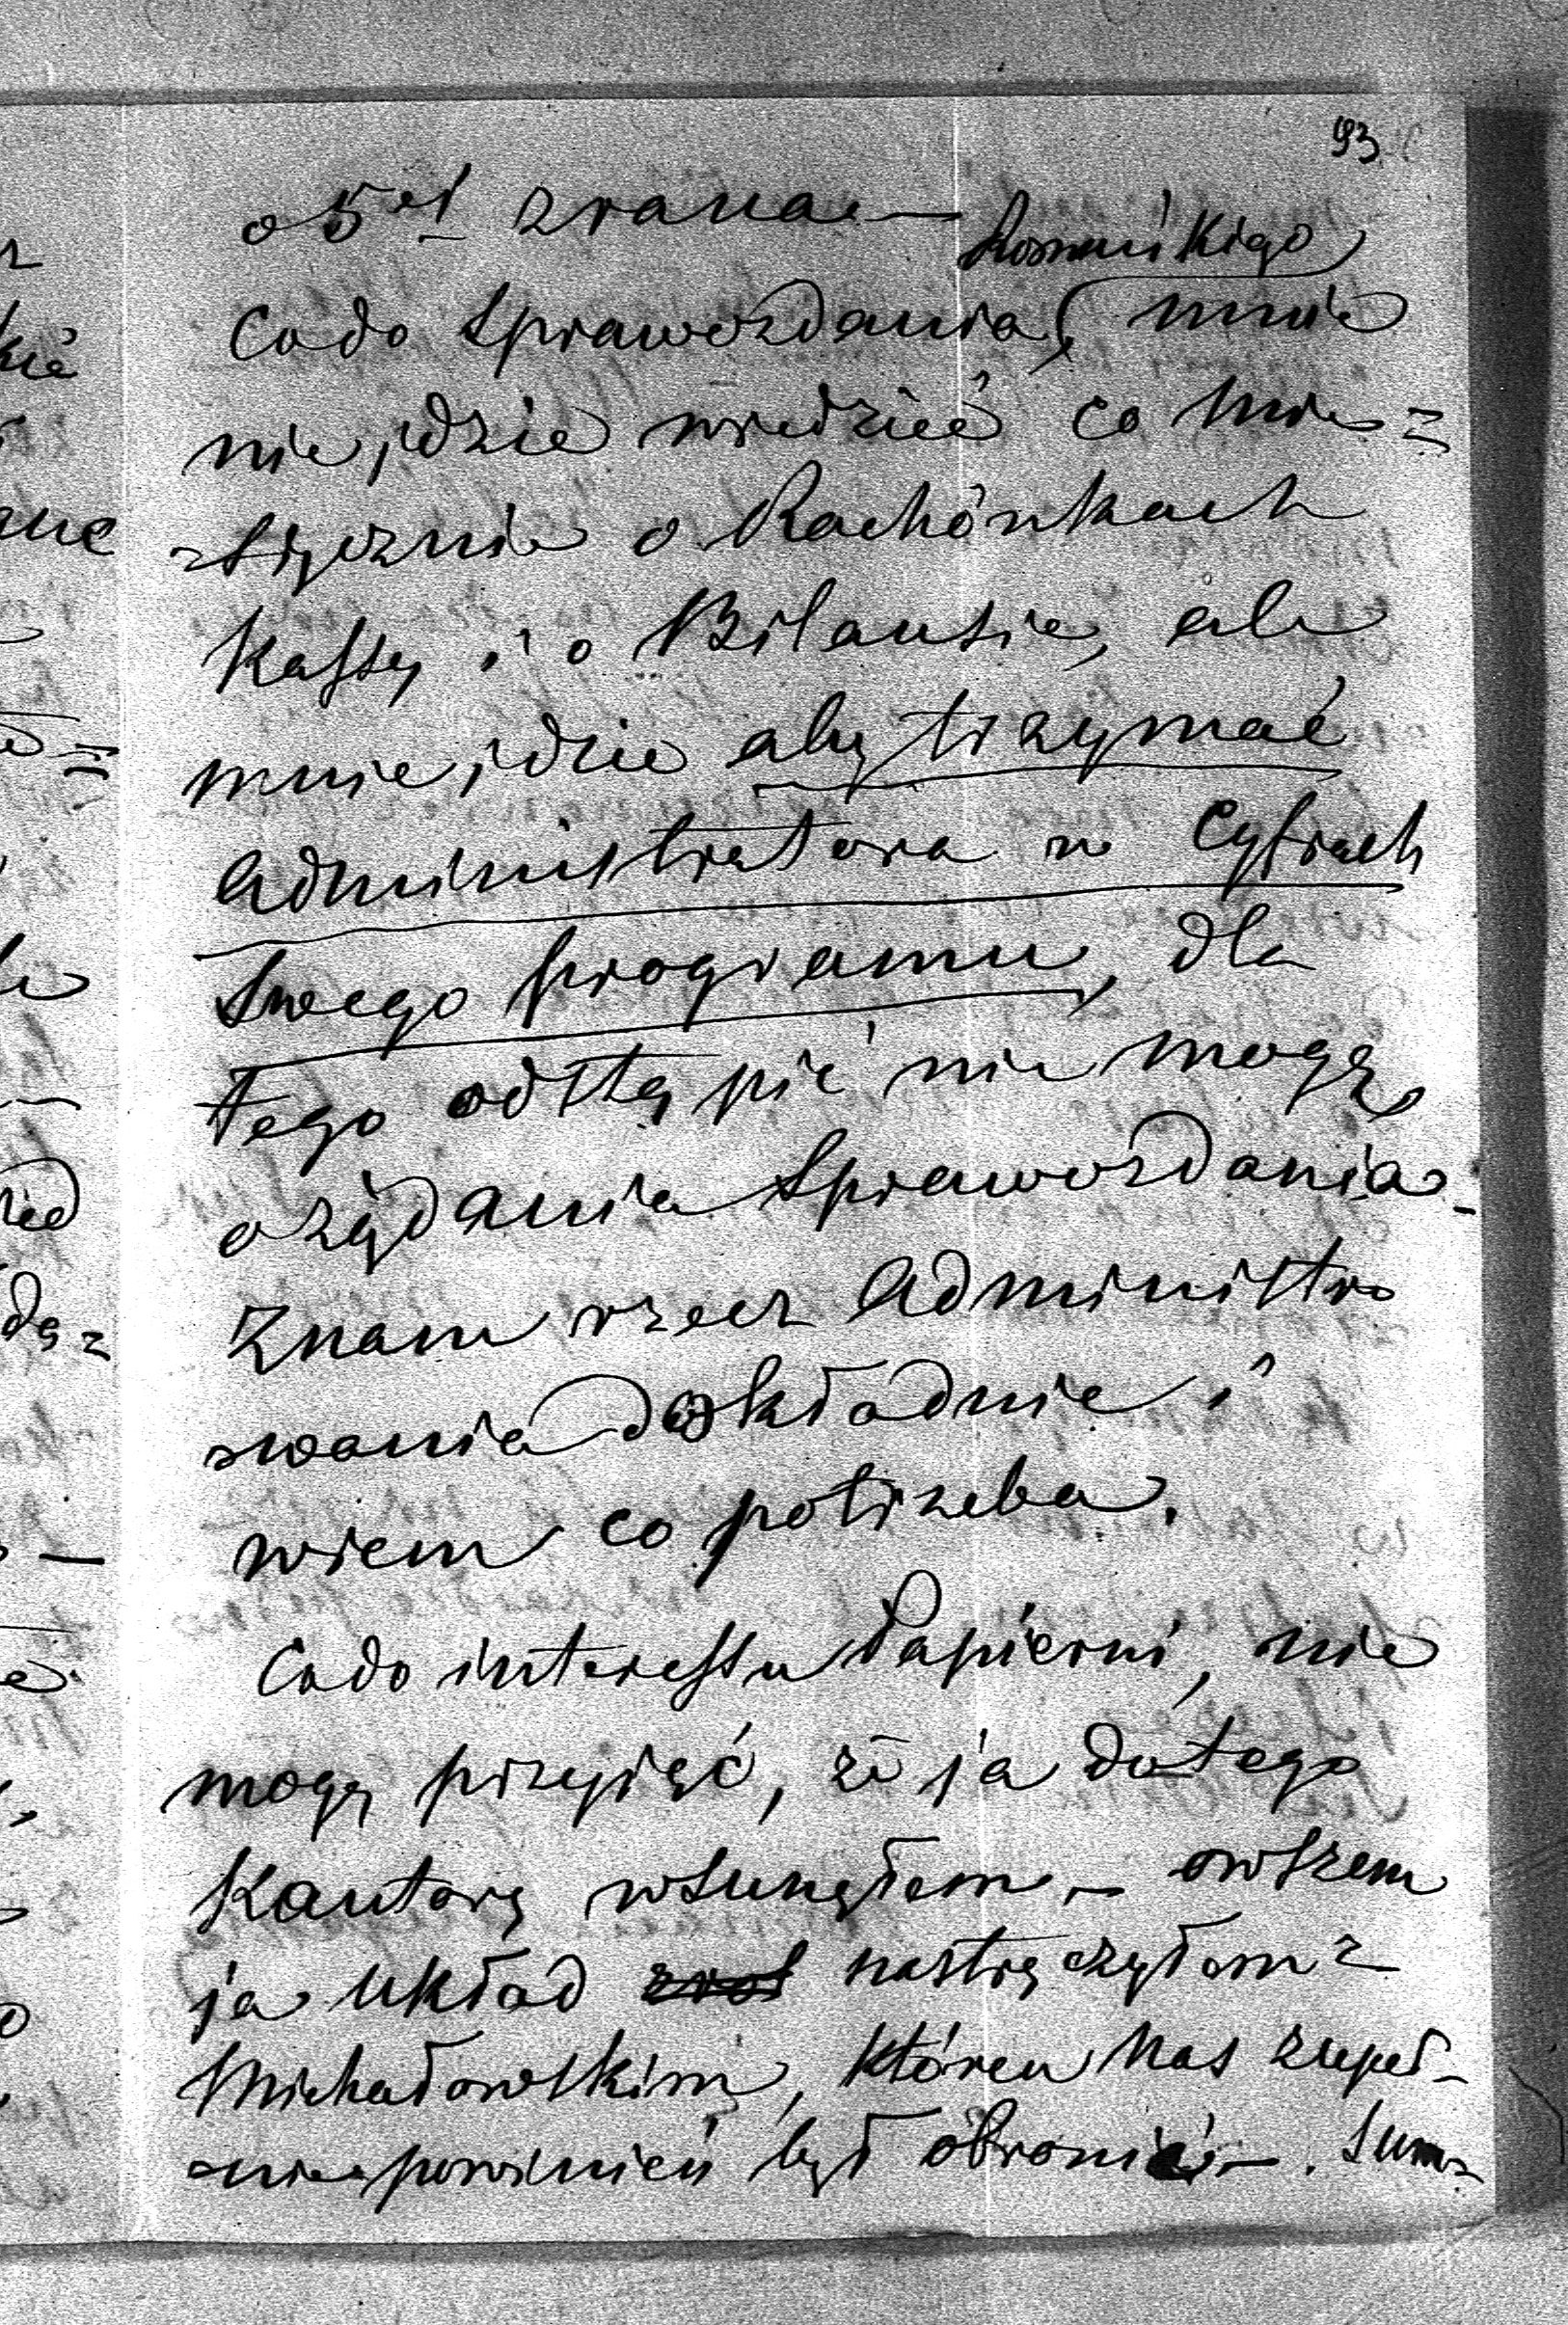 93
o 5ej zrana —
Co do Sprawozdania mnie
nie idzie wiedzieć co mie=
=sięcznie o Rachónkach
Kassy i o Bilansie, ale
mnie idzie aby trzymać
Administratora w Cyfrach
Swego programu, dla
tego odstąpić nie mogę
o żądania Sprawozdania -
Znam rzecz Administro
=wania dokładnie i
wiem co potrzeba.
Co do interessu Papierni, nie
mogę przyjąć, że ja do tego
Kantorę wsunąłem — owszem
ja układ nastręczyłem z
Michałowskim, któren nas zupeł=
=nie powinien był obronić —. Sum=